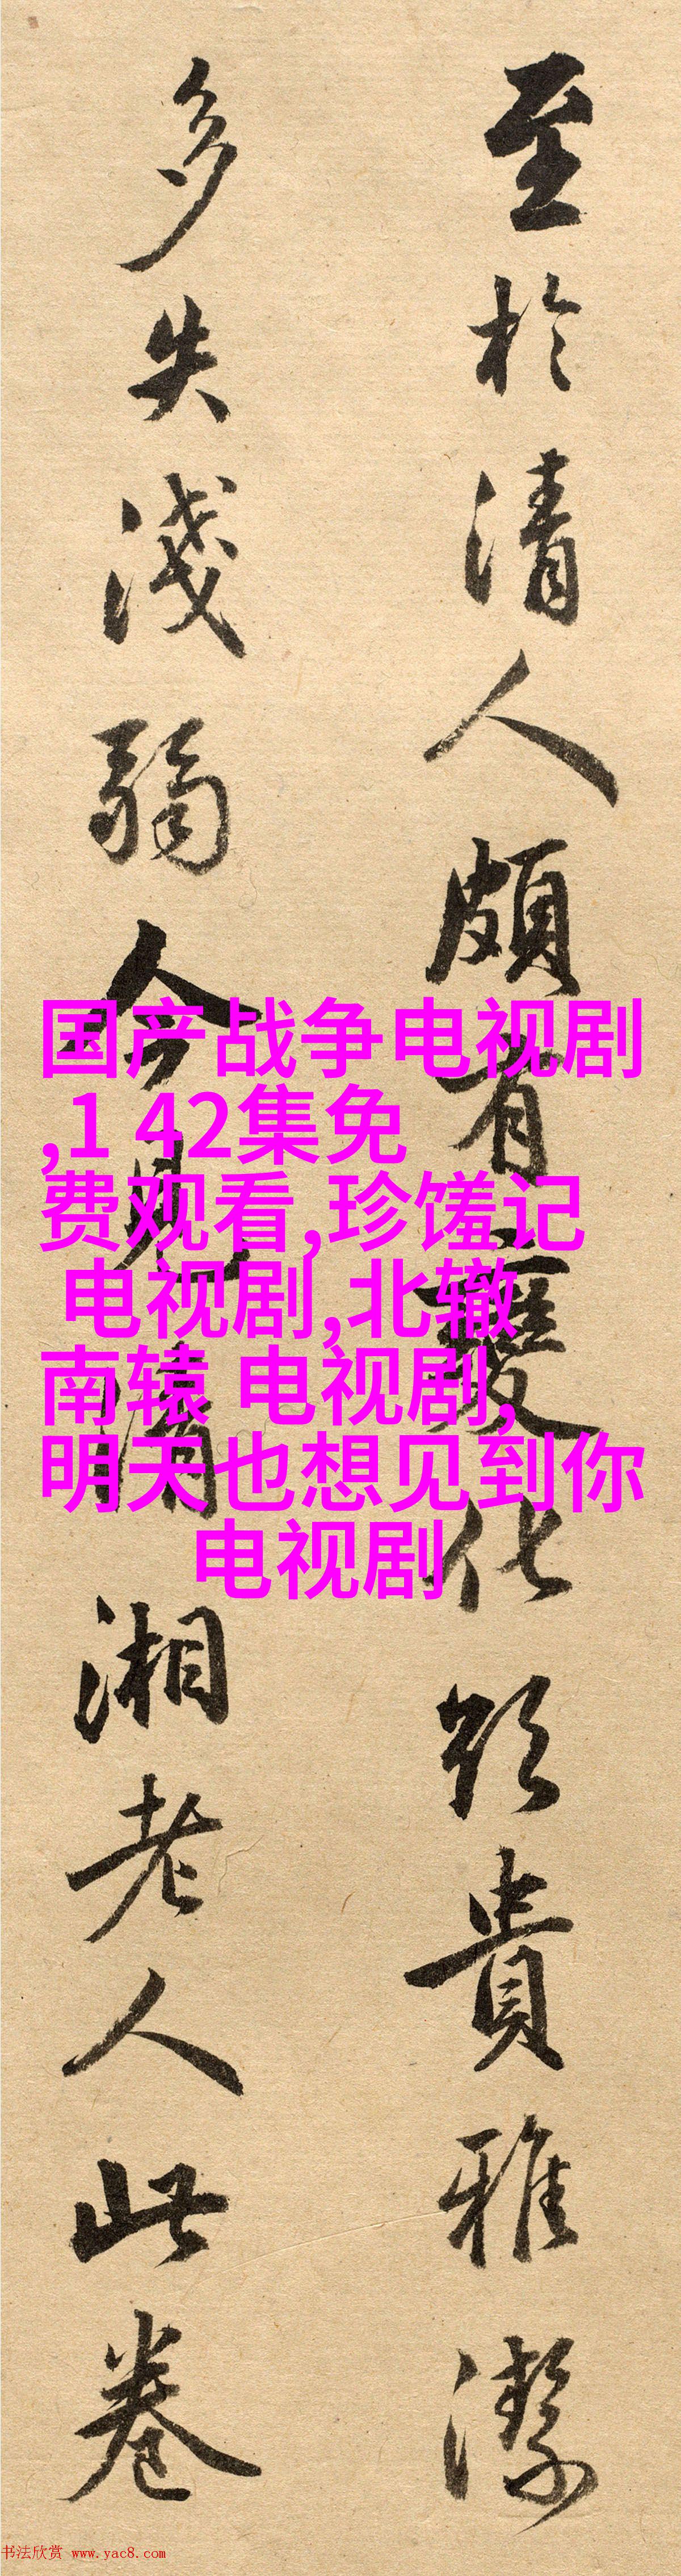 至於清人頗有變化貴雅潔
多失淺弱今見清湘老人此卷
国产战争电视剧
,1 42集免
费观看,珍馐记
电视剧,北辙
南辕 电视剧,
明天也想见到你
电视剧
书法欣赏 www.yac8.com